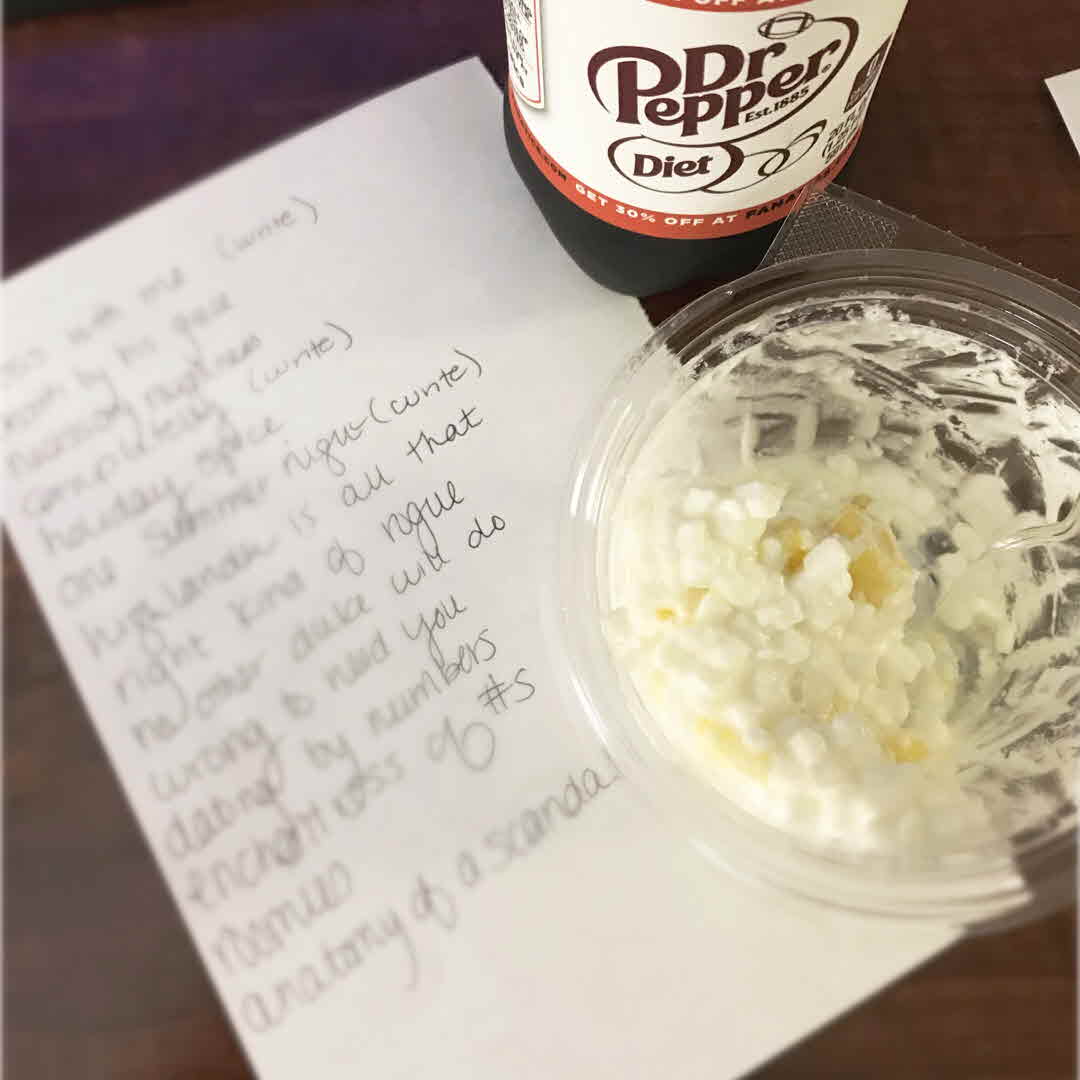 OFF A
Dr
Pepper®
Est.1885
Diet
20 FL
GET 30% OFF AT FANA
with me (write)
by his
completely (write)
holiday space
one summer night (write)
highlander is all that
right kind of rogue
no other duke will do
wrong to need you
dating by numbers
enchantress of #s
roomies
anatomy of a scandal